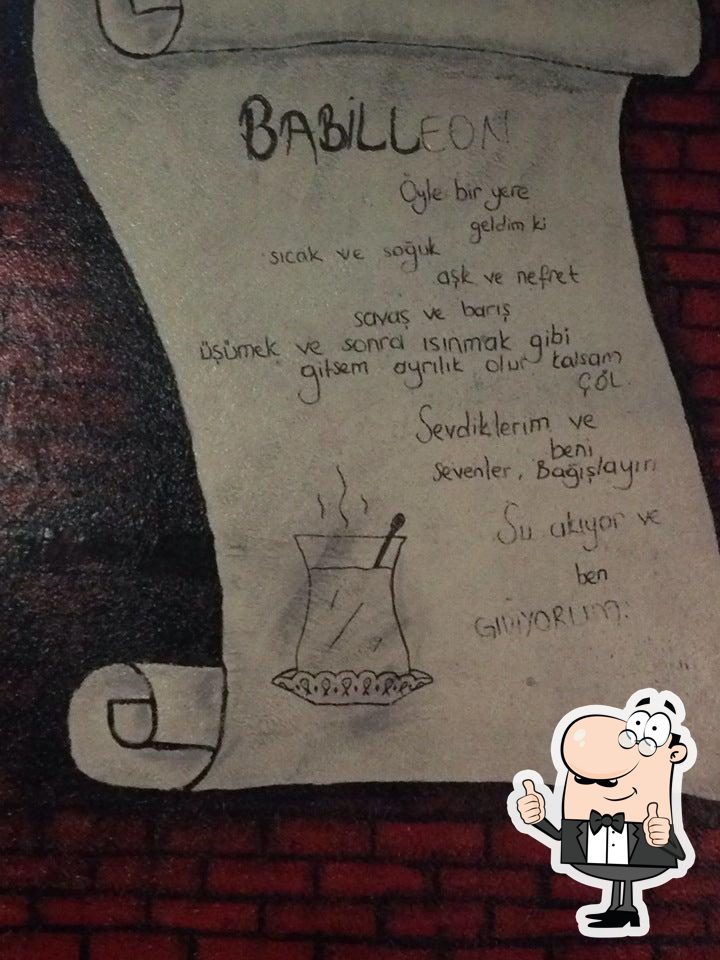 BABİLLEON
Öyle bir yere
geldim ki
sıcak ve soğuk
aşk ve nefret
savaş ve barış
üşümek ve sonra ısınmak gibi
gitsem ayrılık olur kalsam
ÇÖL.
Sevdiklerim ve
beni
sevenler, Bağışlayın
Su akıyor ve
ben
GİDİYORUM.